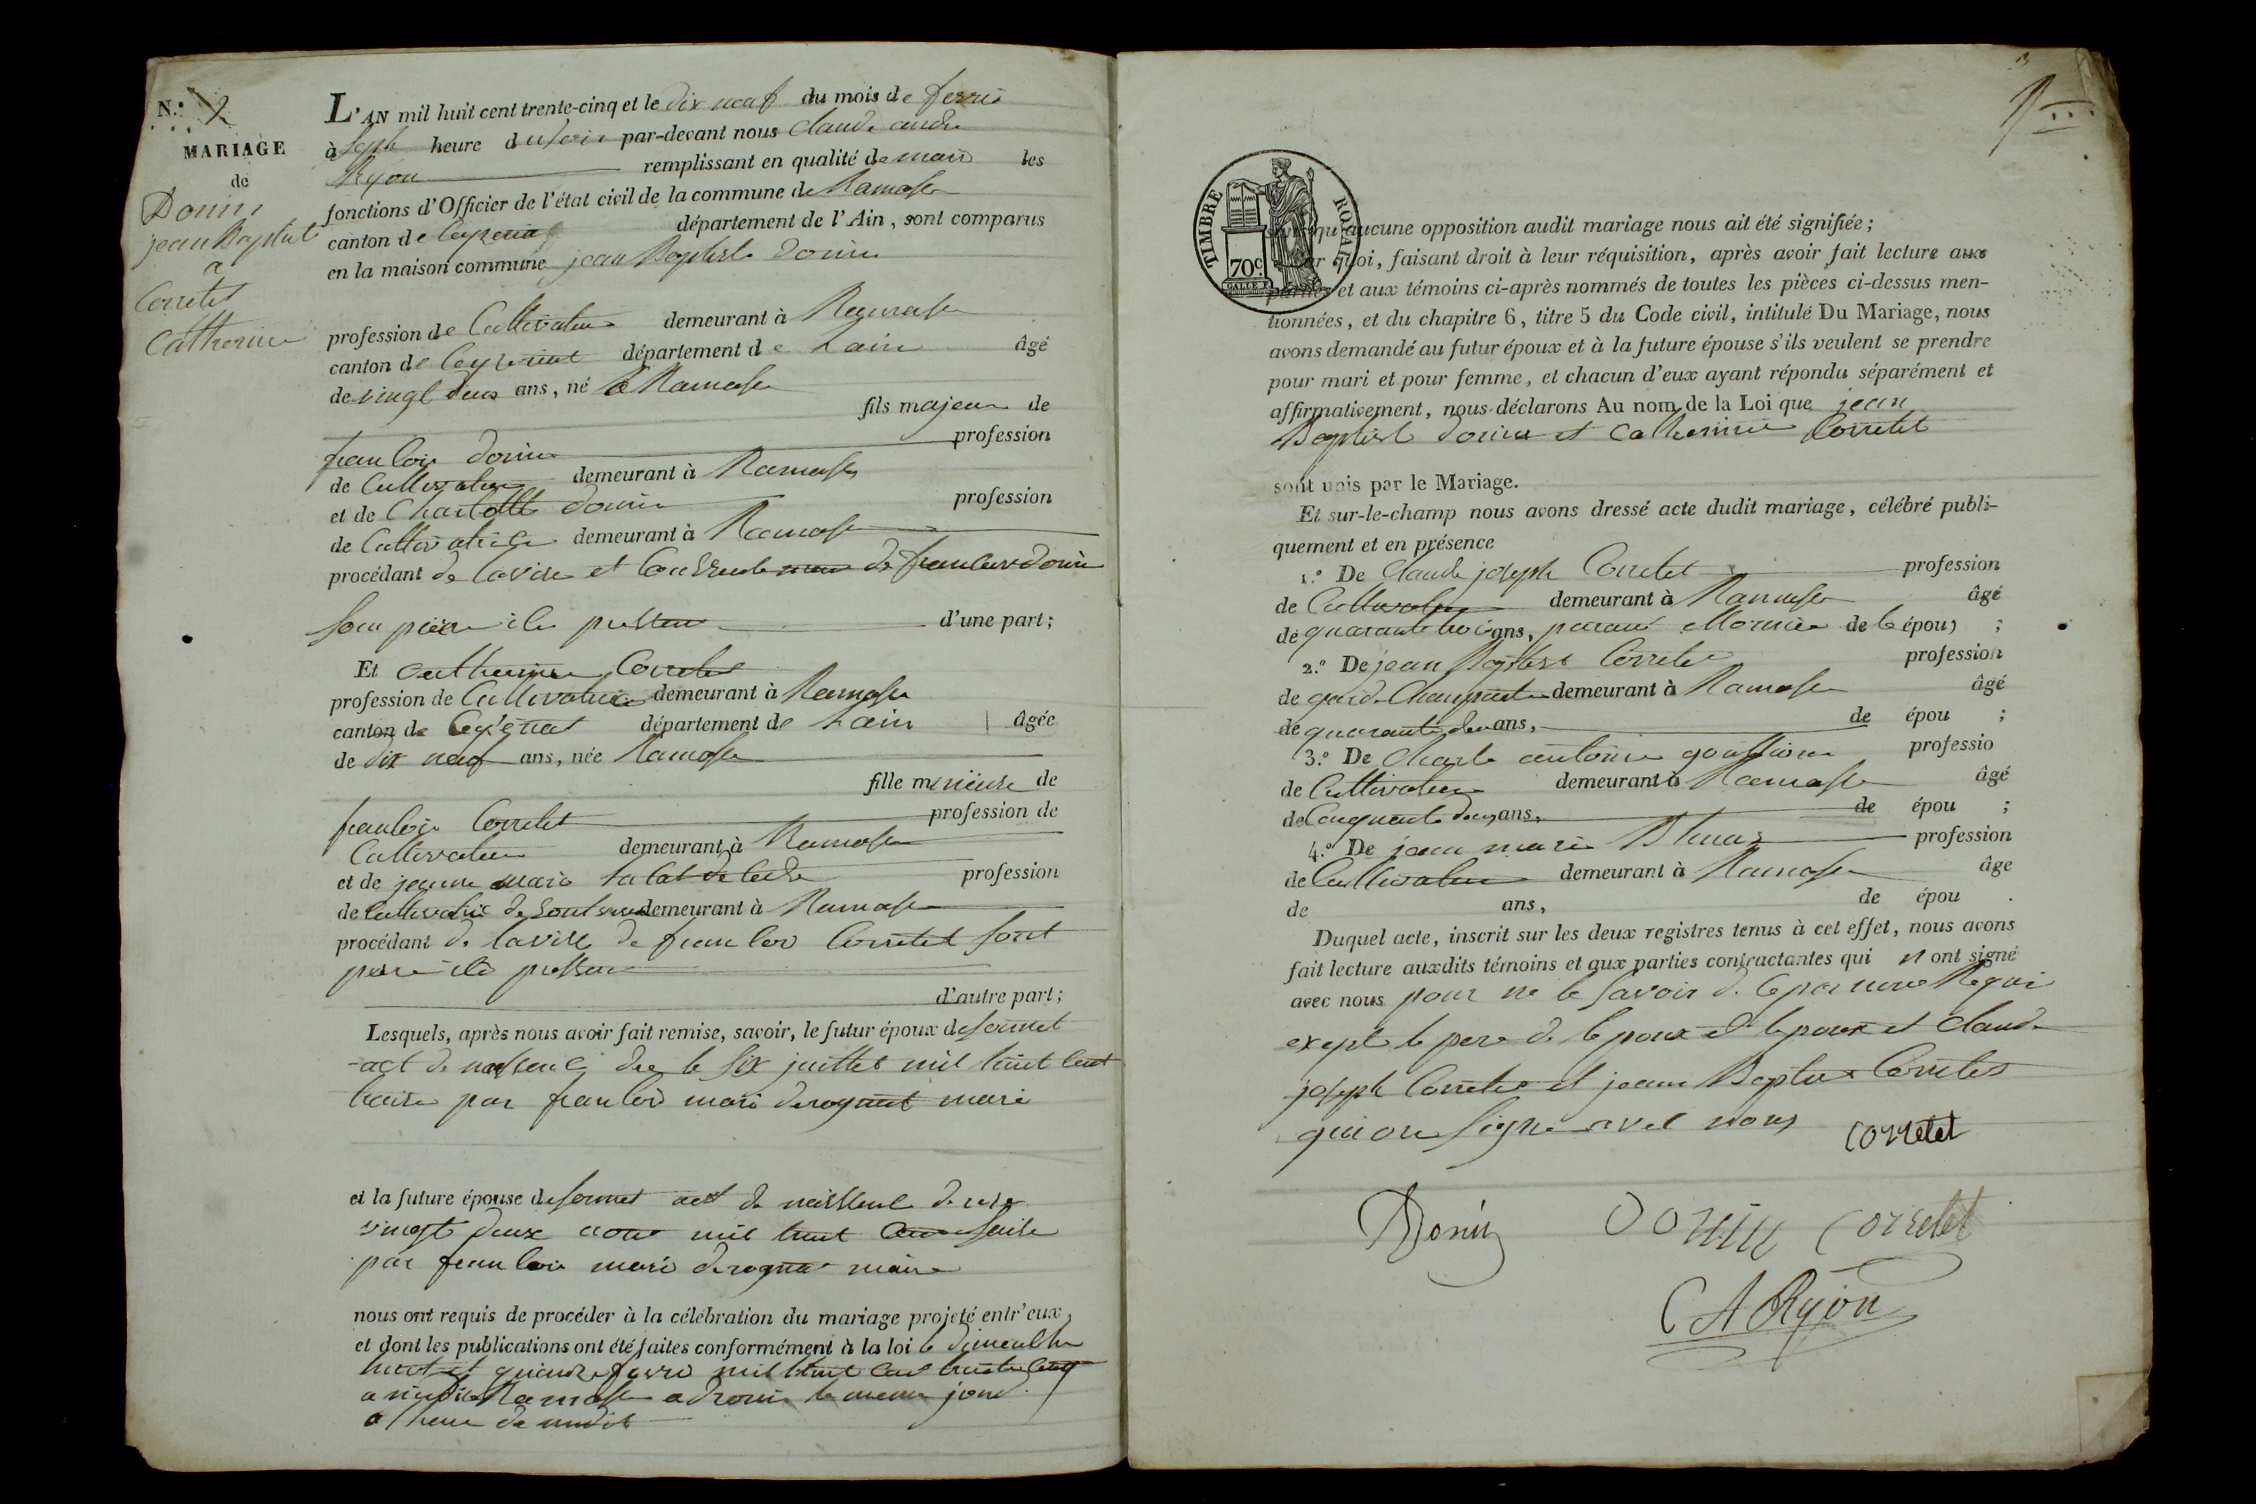 N.° 2
MARIAGE
de
Donin
jean Baptiste
a
Corretet
Catherine
L'AN mil huit cent trente-cinq et le dix neuf du mois de fevrie
à Sept heure du Soir par-devant nous Claude andre
Ryon remplissant en qualité de maire les
fonctions d'Officier de l'état civil de la commune de Ramasse
canton de Ceyzeriat département de l'Ain, sont comparus
en la maison commune jean Baptiste donin
profession de Cultivateur demeurant à Ramasse
canton de Ceyzeriat département de Lain âgé
de vingt deux ans, né à Ramasse
fils majeur de
francois donin profession
de Cultivateur demeurant à Ramasse
et de Charlotte donin profession
de Cultivatrice demeurant à Ramasse
procédant de lavise et Consente de francois donin
Son père ici present d'une part;
Et Catherine Corretet
profession de Cultivatrice demeurant à Ramasse
canton de Ceyzeriat département de Lain âgée
de dix neuf ans, née Ramasse
fille mineure de
francois Corretet profession de
Cultivateur demeurant à Ramasse
et de jeanne marie profession
de Cultivatrice demeurant à Ramasse
procédant de lavise de francois Corretet Sont
pere ici present
d'autre part;
Lesquels, après nous avoir fait remise, savoir, le futur époux de Sonnet
act de naissence du le Six juillet mil huit cent
traise par francois marie mari
et la future épouse de Sonnet act de naissence
vingt deux aout mil huit cent Seise
par francois marie maire
nous ont requis de procéder à la célébration du mariage projeté entr'eux,
et dont les publications ont été faites conformément à la loi le dimenche
huit et quinze fevrie mil huit cent trente cinq
a Ramasse le meme jour
a heure de midit
TIMBRE ROYAL
70c
sans qu'aucune opposition audit mariage nous ait été signifiée;
Sur quoi, faisant droit à leur réquisition, après avoir fait lecture aux
parties et aux témoins ci-après nommés de toutes les pièces ci-dessus men-
tionnées, et du chapitre 6, titre 5 du Code civil, intitulé Du Mariage, nous
avons demandé au futur époux et à la future épouse s'ils veulent se prendre
pour mari et pour femme, et chacun d'eux ayant répondu séparément et
affirmativement, nous déclarons Au nom de la Loi que jean
Baptiste donin et Catherine Corretet
sont unis par le Mariage.
Et sur-le-champ nous avons dressé acte dudit mariage, célébré publi-
quement et en présence
1.° De Claude joseph Corretet profession
de Cultivateur demeurant à Ramasse âgé
de quarante trois ans, de le épou ;
2.° De jean Baptiste Corretet profession
de garde Champetre demeurant à Ramasse âgé
de quarante deux ans, de épou ;
3.° De Charle antoine professio
de Cultivateur demeurant à Ramasse âgé
de Cinquante deux ans, de épou ;
4.° De jean marie profession
de Cultivateur demeurant à Ramasse âge
de ans, de épou .
Duquel acte, inscrit sur les deux registres tenus à cet effet, nous avons
fait lecture auxdits témoins et aux parties contractantes qui n ont signé
avec nous pour ne le Savoir de Requi
exepte le pere de lepoux et lepoux et Claude
joseph Corretet et jean Baptiste Corretet
qui on Signe avec nous Corretet
Donin donin Corretet
C A Ryon